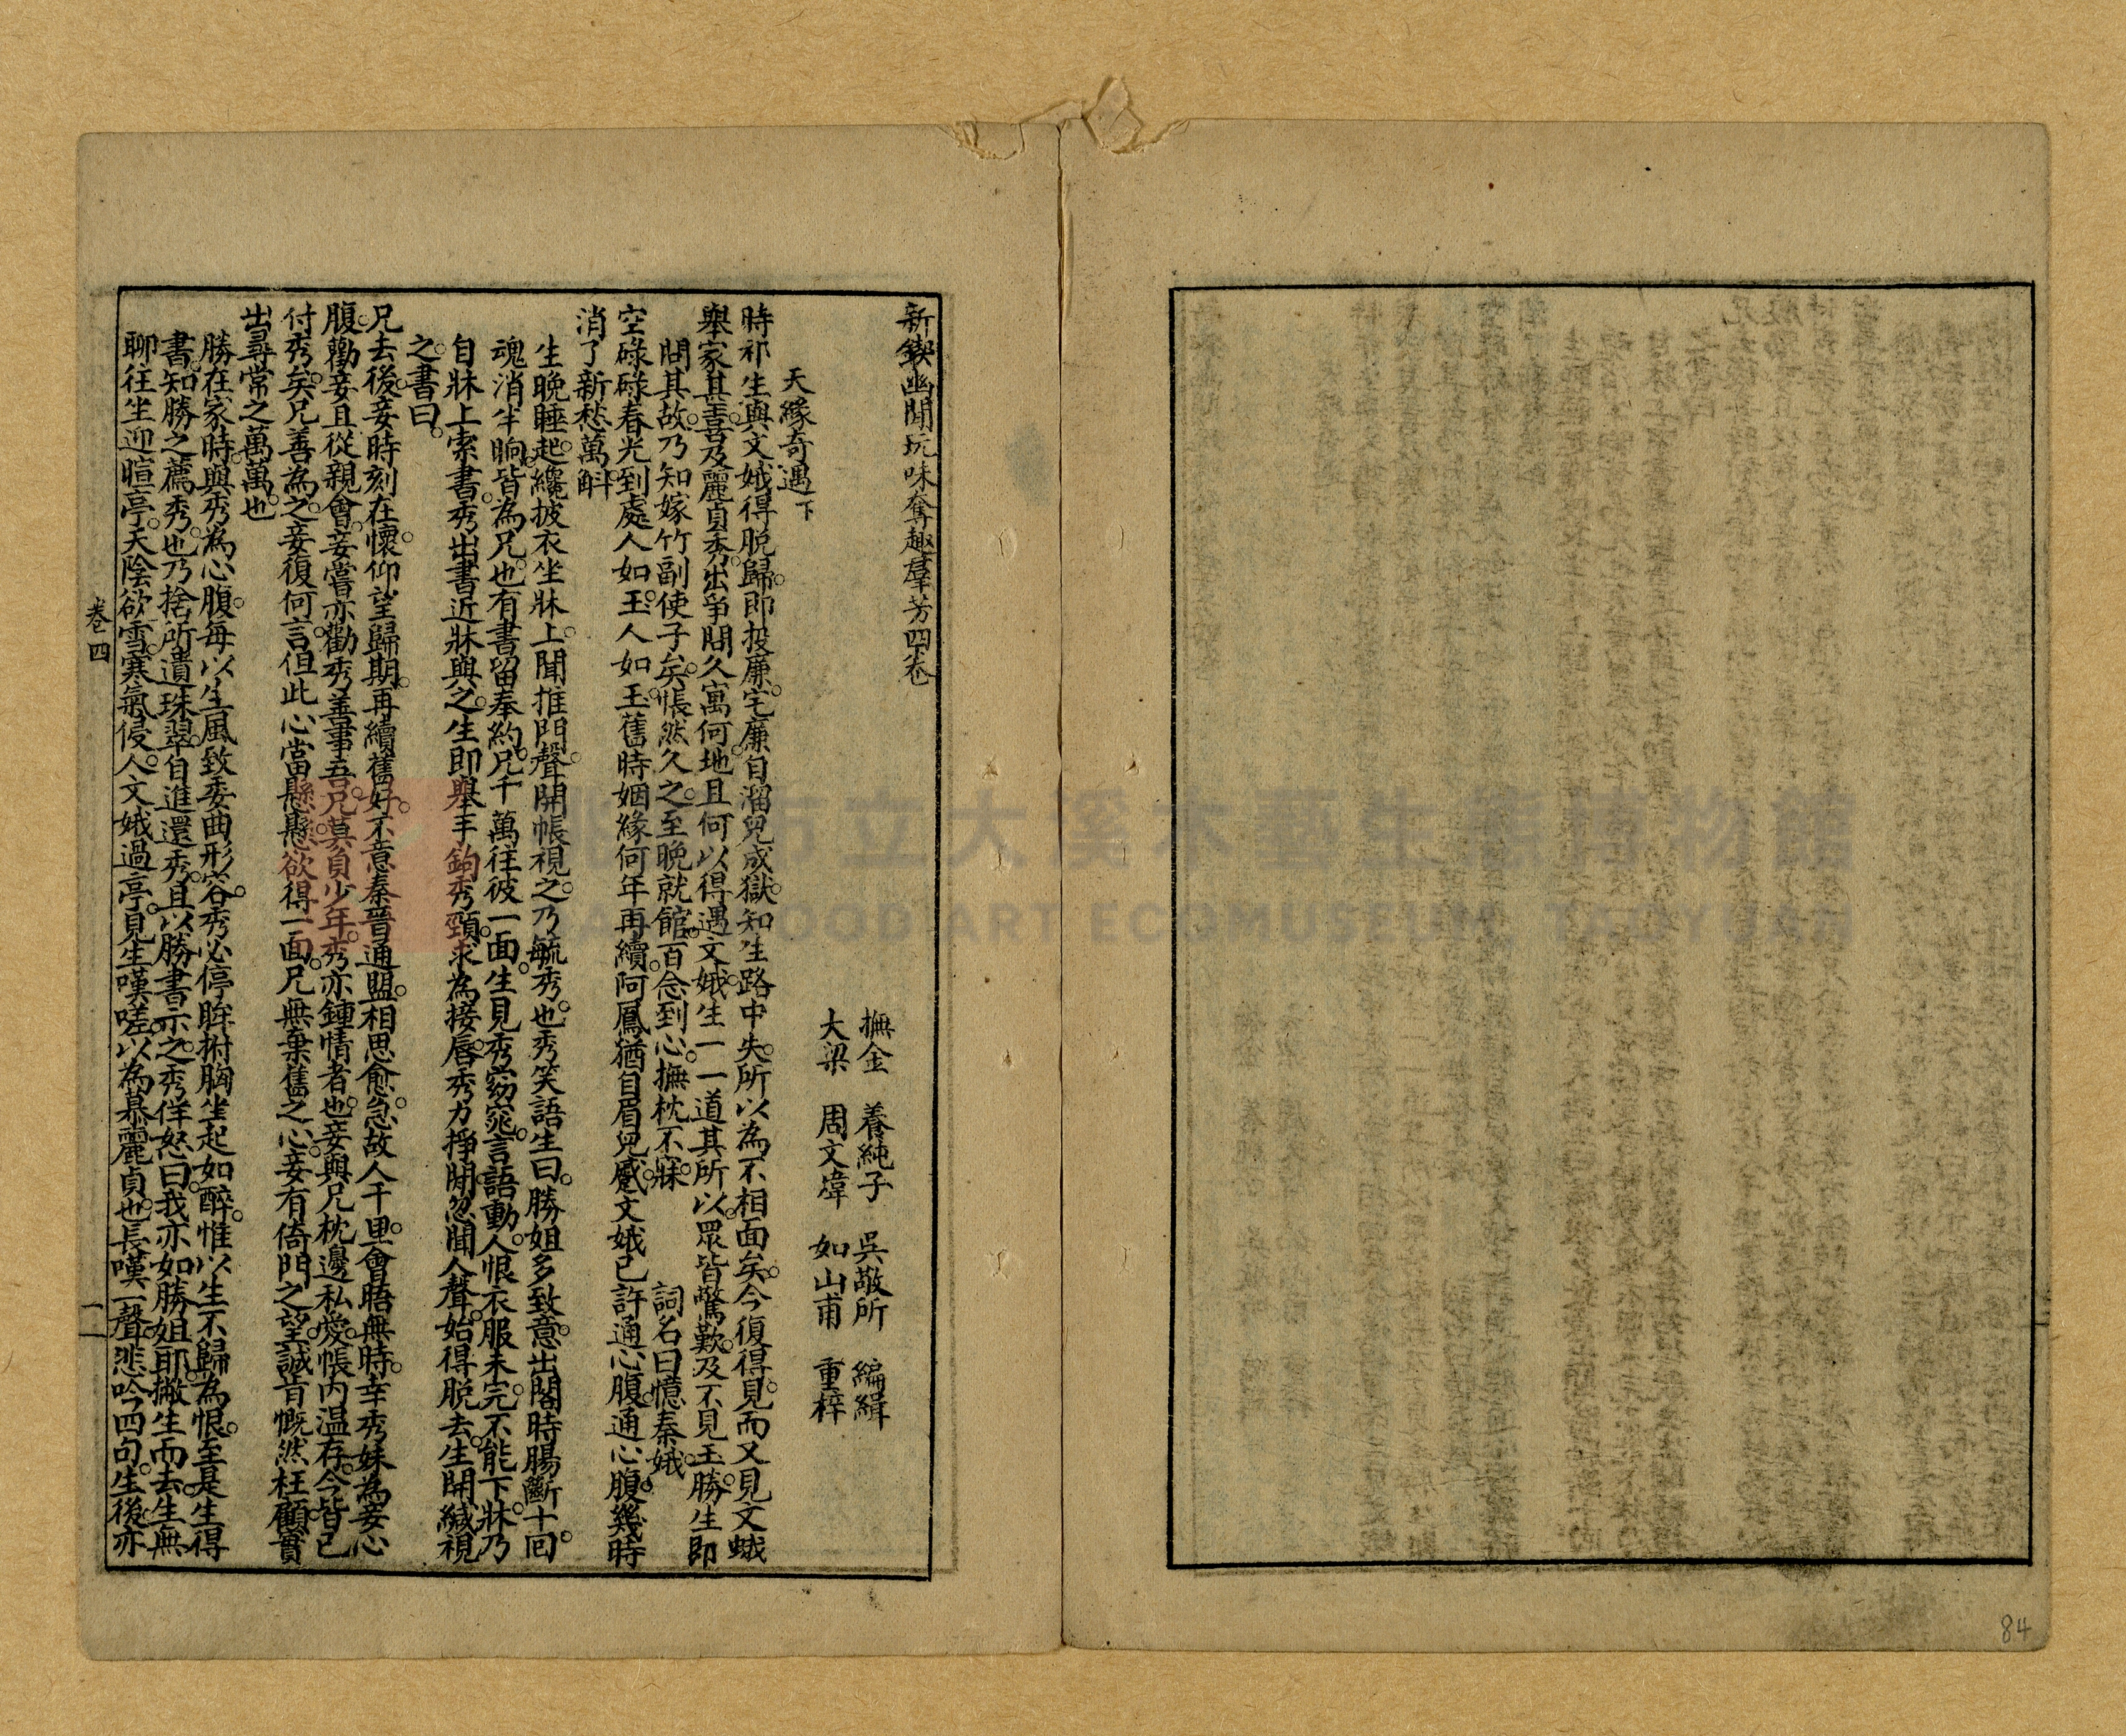 新鍥幽閒玩味奪趣羣芳四卷
撫金　養純子　吳敬所　編緝
大梁　周文煒　如山甫　重梓
天緣奇遇下
時祁生與文娥得脫歸即投廉宅廉自溜兒成獄知生路中失所以為不相面矣今復得見而又見文蛾
舉家甚喜及麗貞秀出爭問久寓何地且何以得遇文娥生一一道其所以眾皆驚歎及不見玉勝生即
問其故乃知嫁竹副使子矣悵然久之至晚就館百念到心撫枕不寐　詞名曰憶秦娥
空碌碌春光到處人如玉人如玉舊時姻緣何年再續阿鳳猶自眉兒蹙文娥已許通心腹通心腹幾時
消了新愁萬斛
生晚睡起纔披衣坐牀上聞推門聲開帳視之乃毓秀也秀笑語生曰勝姐多致意出閣時腸斷十回
魂消半晌皆為兄也有書留奉約兄千萬往彼一面生見秀窈窕言語動人恨衣服未完不能下牀乃
自牀上索書秀出書近牀與之生即舉手鉤秀頸求為接唇秀力掙開忽聞人聲始得脫去生開緘視
之書曰
兄去後妾時刻在懷仰望歸期再續舊好不意秦晉通盟相思愈急故人千里會晤無時幸秀妹為妾心
腹勸妾且從親會妾嘗亦勸秀善事吾兄莫負少年秀亦鍾情者也妾與兄枕邊私愛帳內温存今皆已
付秀矣兄善為之妾復何言但此心當懸懸欲得一面兄無棄舊之心妾有倚門之望誠肯慨然枉顧實
出尋常之萬萬也
勝在家時與秀為心腹每以生風致委曲形容秀必停眸拊胸坐起如醉惟以生不歸為恨至是生得
書知勝之薦秀也乃捨所遺珠翠自進還秀且以勝書示之秀佯怒曰我亦如勝姐耶撇生而去生無
聊往坐迎暄亭天陰欲雪寒氣侵人文娥過亭見生嘆嗟以為慕麗貞也長嘆一聲悲吟四句生後亦
卷四
一
84
桃園市立大溪木藝生態博物館
DAXI WOOD ART ECOMUSEUM, TAOYUAN